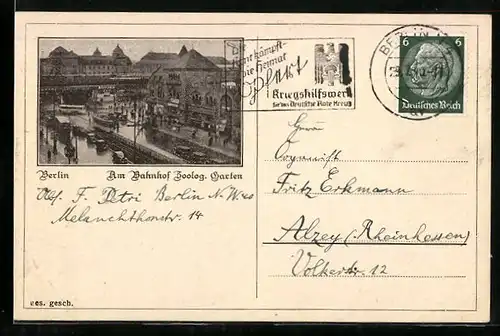 Die
Front kämpft-
die Heimat
opfert
Kriegshilfswerk
für das Deutsche Rote Kreuz
BERLIN
6 6
Deutsches Reich
Berlin Am Bahnhof Zoolog. Garten
Abs. F. Petri Berlin N.W.
Melanchthonstr. 14
Herrn
Organist
Fritz Erkmann
Alzey (Rheinhessen)
Volkerstr. 12
ges. gesch.